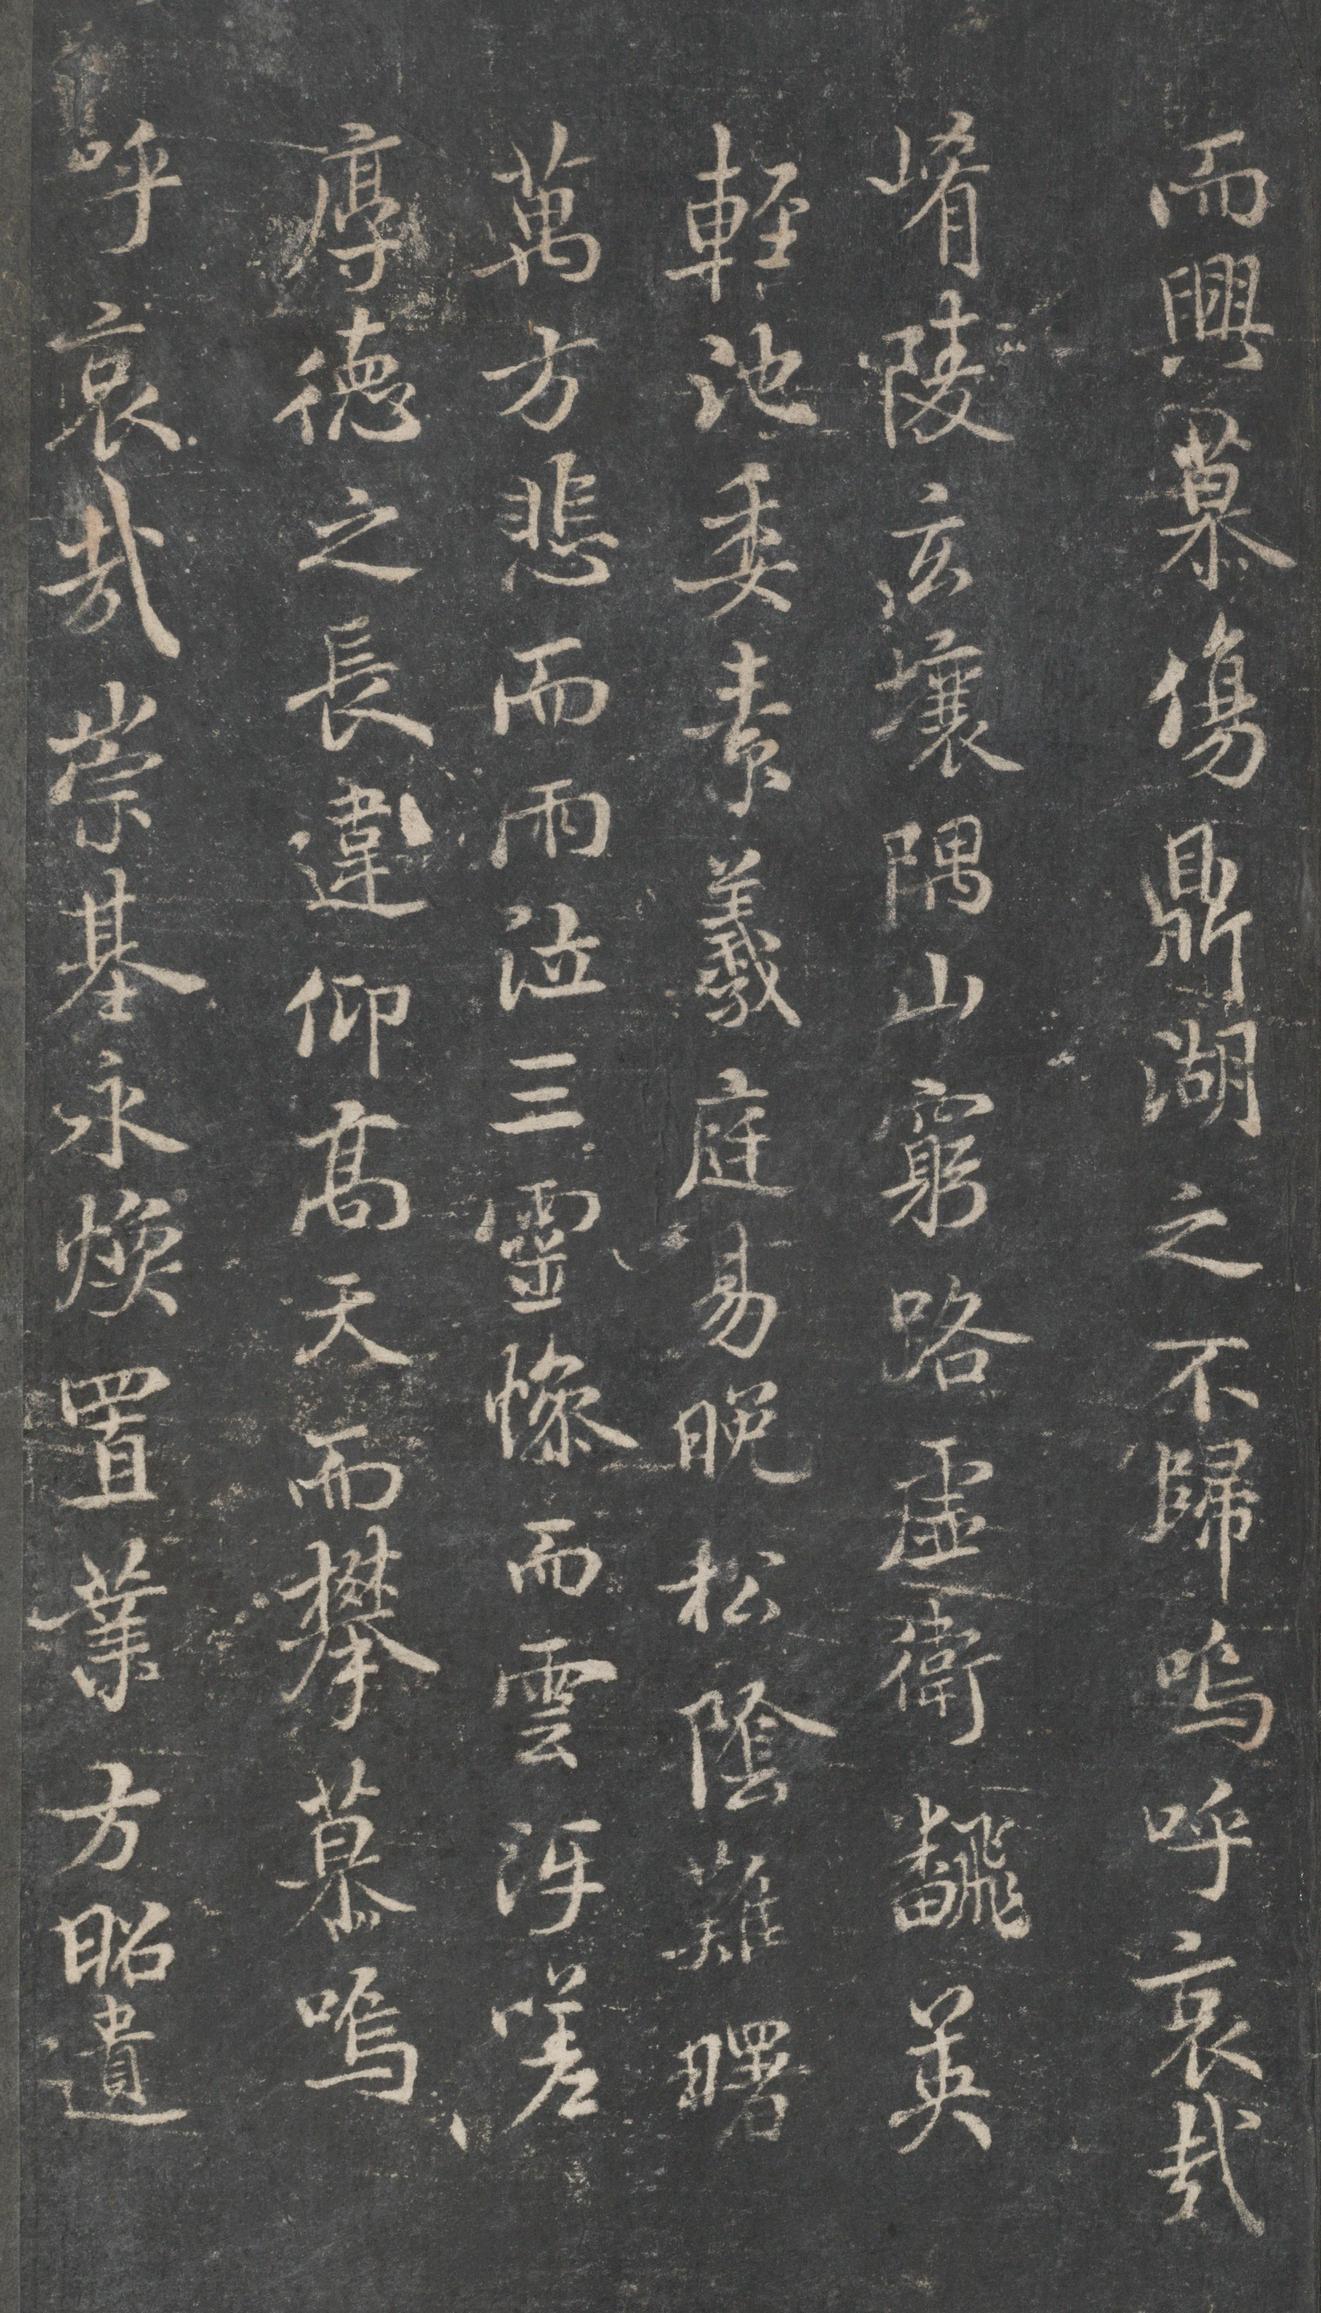 而興慕傷鼎湖之不歸嗚呼哀哉
崤陵玄壤隅山窮路虛衛飜英
輕池委素羲庭易晚松陰難曙
萬方悲而雨泣三靈慘而雲沍嗟
厚德之長違仰高天而攀慕嗚
呼哀哉崇基永煥置業方昭遺